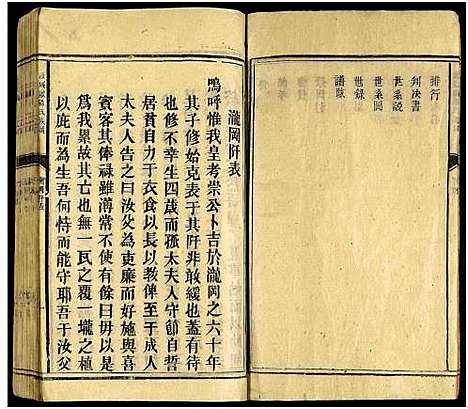 排行
判决書
世系説
世系圖
世錄
譜跋
瀧岡阡表
嗚呼惟我皇考崇公卜吉於瀧岡之六十年
其子修始克表於其阡非敢緩也蓋有待
也修不幸生四歲而孤太夫人守節自誓
居貧自力于衣食以長以教俾至于成人
太夫人告之曰汝父爲吏廉而好施與喜
賓客其俸祿雖薄常不使有餘曰毋以是
爲我累故其亡也無一瓦之覆一壠之植
以庇而爲生吾何恃而能守耶吾于汝父